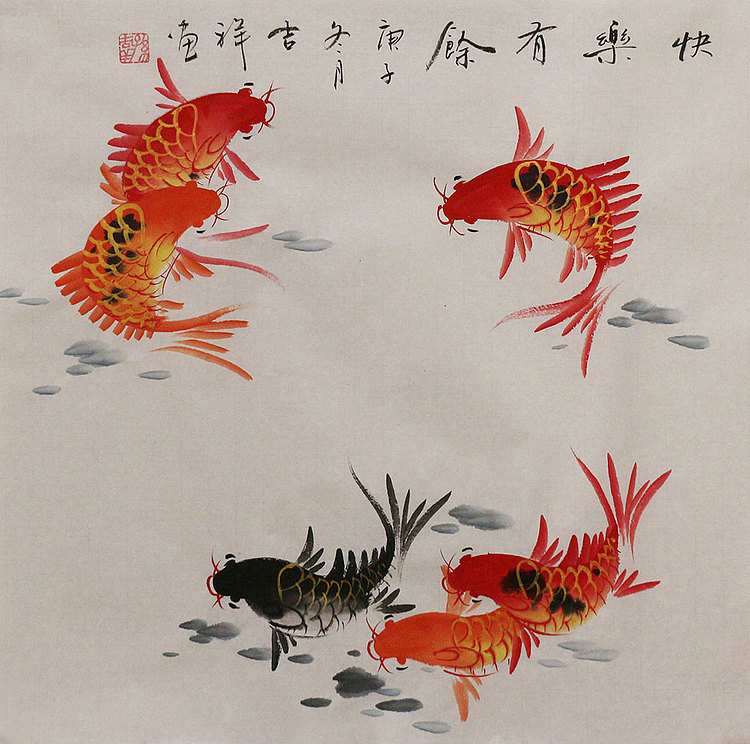 快樂有餘
庚子冬月吉祥画